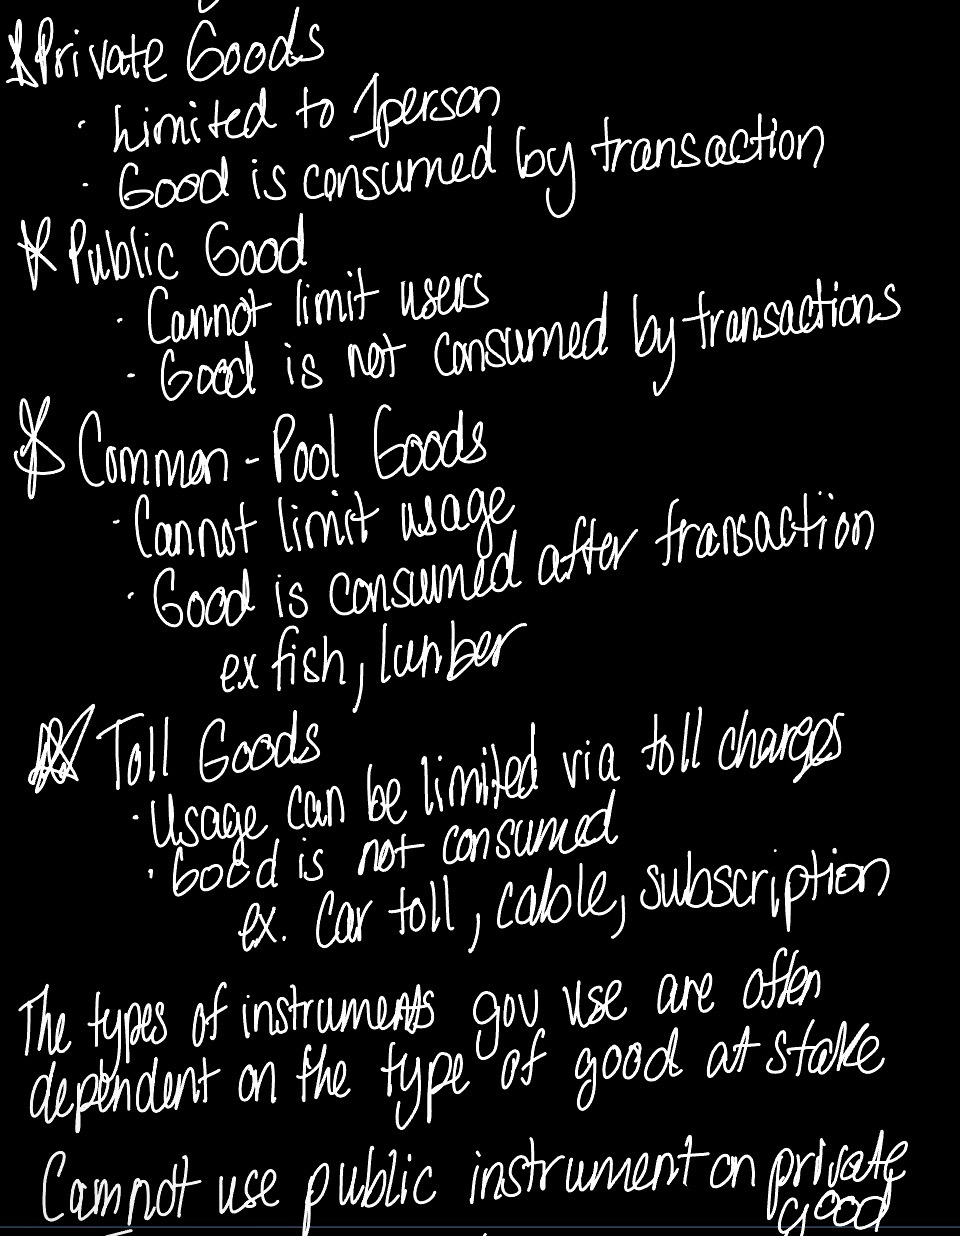 Private Goods
· Limited to 1 person
· Good is consumed by transaction
Public Good
· Cannot limit users
· Good is not consumed by transactions
Common-Pool Goods
· Cannot limit usage
· Good is consumed after transaction
ex fish, lumber
Toll Goods
· Usage can be limited via toll charges
· Good is not consumed
ex. Car toll, cable, subscription
The types of instruments gov use are often
dependent on the type of good at stake
Cannot use public instrument on private
good